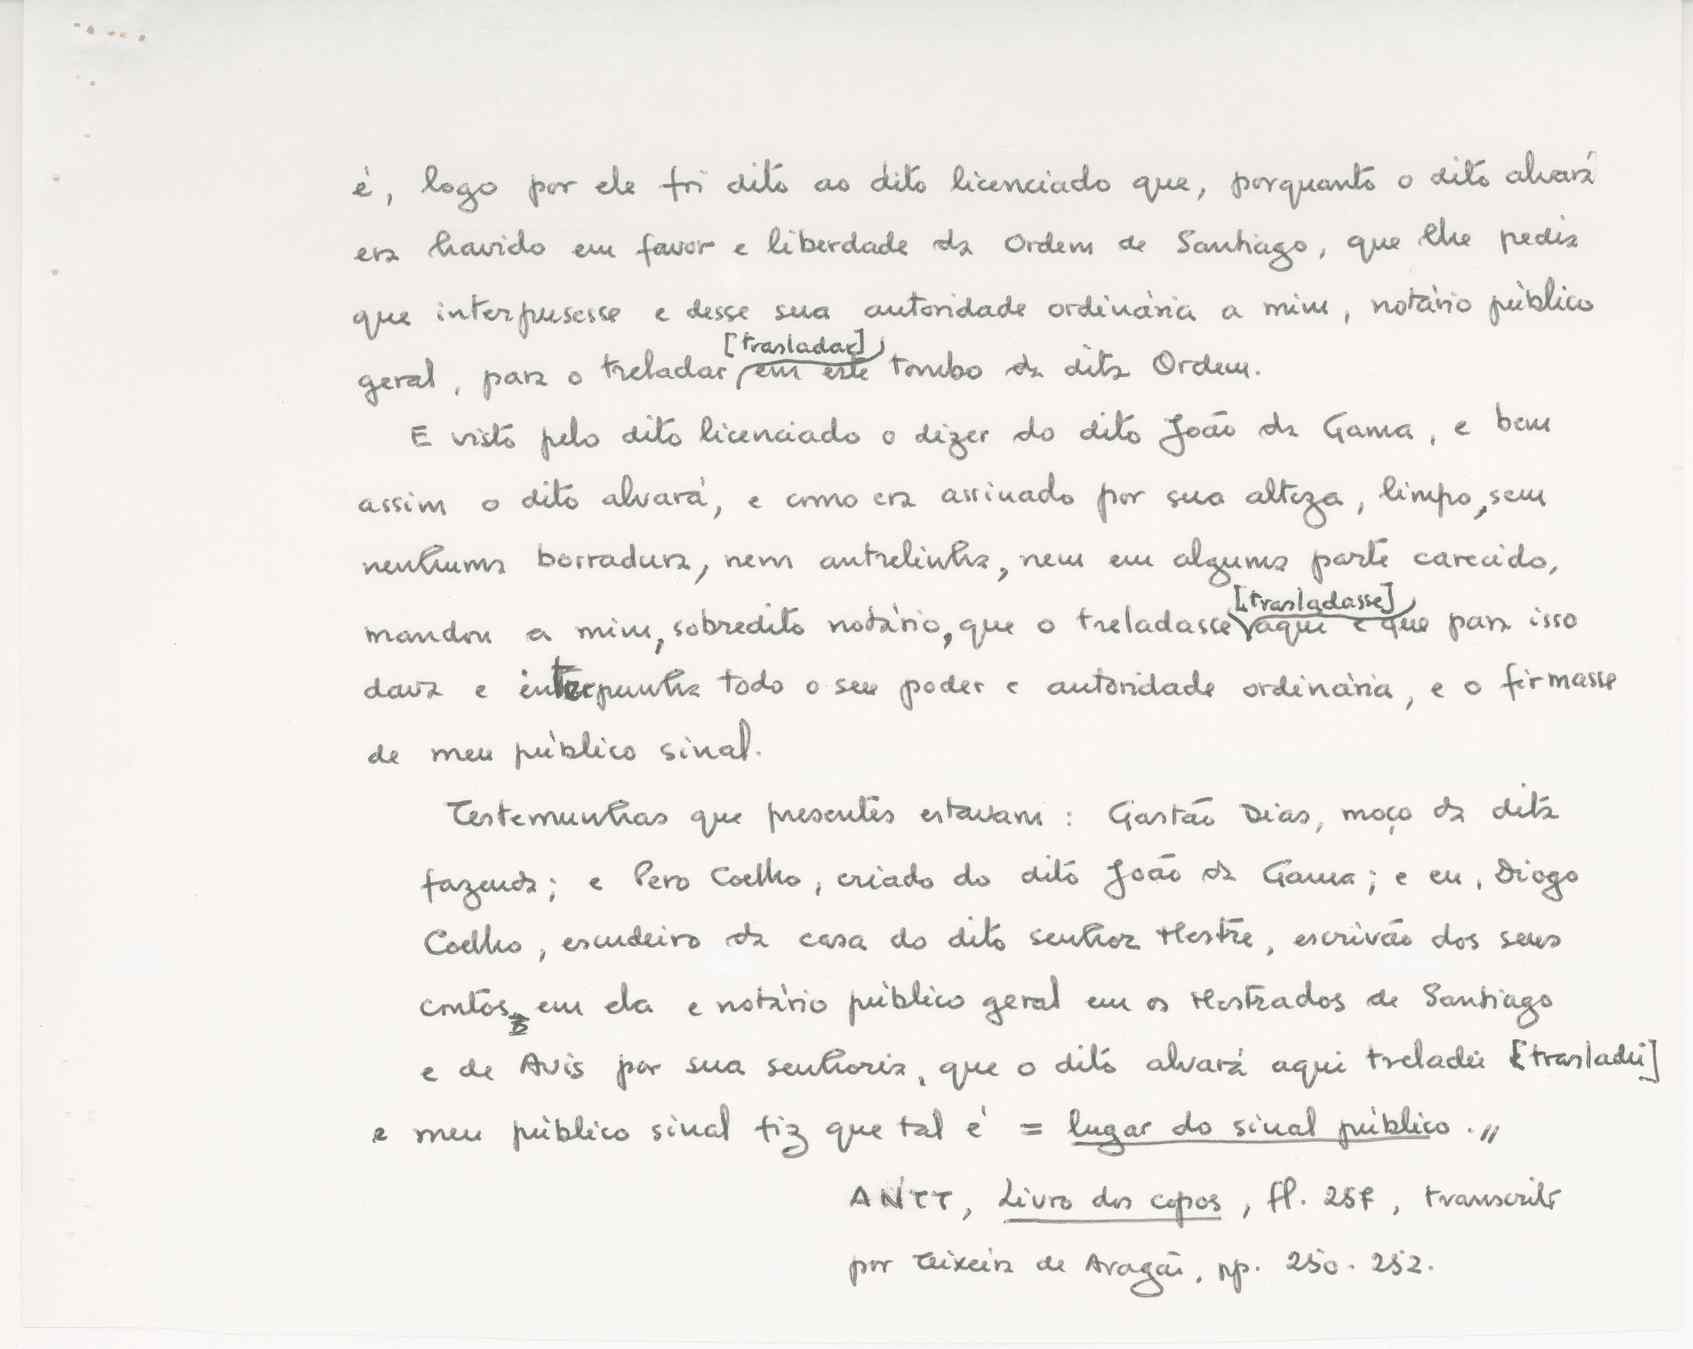 é, logo por ele foi dito ao dito licenciado que, porquanto o dito alvará
era havido em favor e liberdade da Ordem de Santiago, que lhe pedia
que interpusesse e desse sua autoridade ordinária a mim, notário público
geral, para o treladar [trasladar] em este tombo da dita Ordem.
E visto pelo dito licenciado o dizer do dito João da Gama, e bem
assim o dito alvará, e como era assinado por sua alteza, limpo, sem
nenhuma borradura, nem antrelinha, nem em alguma parte carecido,
mandou a mim, sobredito notário, que o treladasse [trasladasse] aqui e que para isso
dava e interpunha todo o seu poder e autoridade ordinária, e o firmasse
de meu público sinal.
Testemunhas que presentes estavam: Gastão Dias, moço da dita
fazenda; e Pero Coelho, criado do dito João da Gama; e eu, Diogo
Coelho, escudeiro da casa do dito senhor Mestre, escrivão dos seus
contos, em ela e notário público geral em os Mestrados de Santiago
e de Avis por sua senhoria, que o dito alvará aqui treladei [trasladei]
e meu público sinal fiz que tal é = lugar do sinal público. //
ANTT, Livro dos copos, fl. 257, transcrito
por Teixeira de Aragão, pp. 250-252.